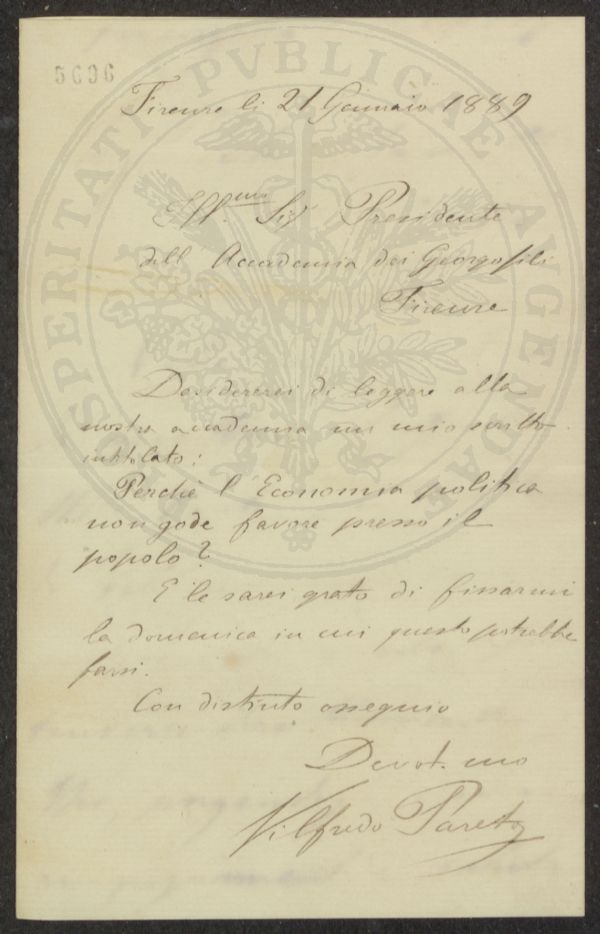 5696
PROSPERITATI PVBLICAE AVGENDAE
Firenze li 21 Gennaio 1889
Ill.mo Sig Presidente
dell Accademia dei Georgofili
Firenze
Desidererei di leggere alla
nostra accademia un mio scritto
intitolato:
Perchè l'Economia politica
non gode favore presso il
popolo?
E le sarei grato di fissarmi
la domenica in cui questo potrebbe
farsi.
Con distinto ossequio
Devot.mo
Vilfredo Pareto